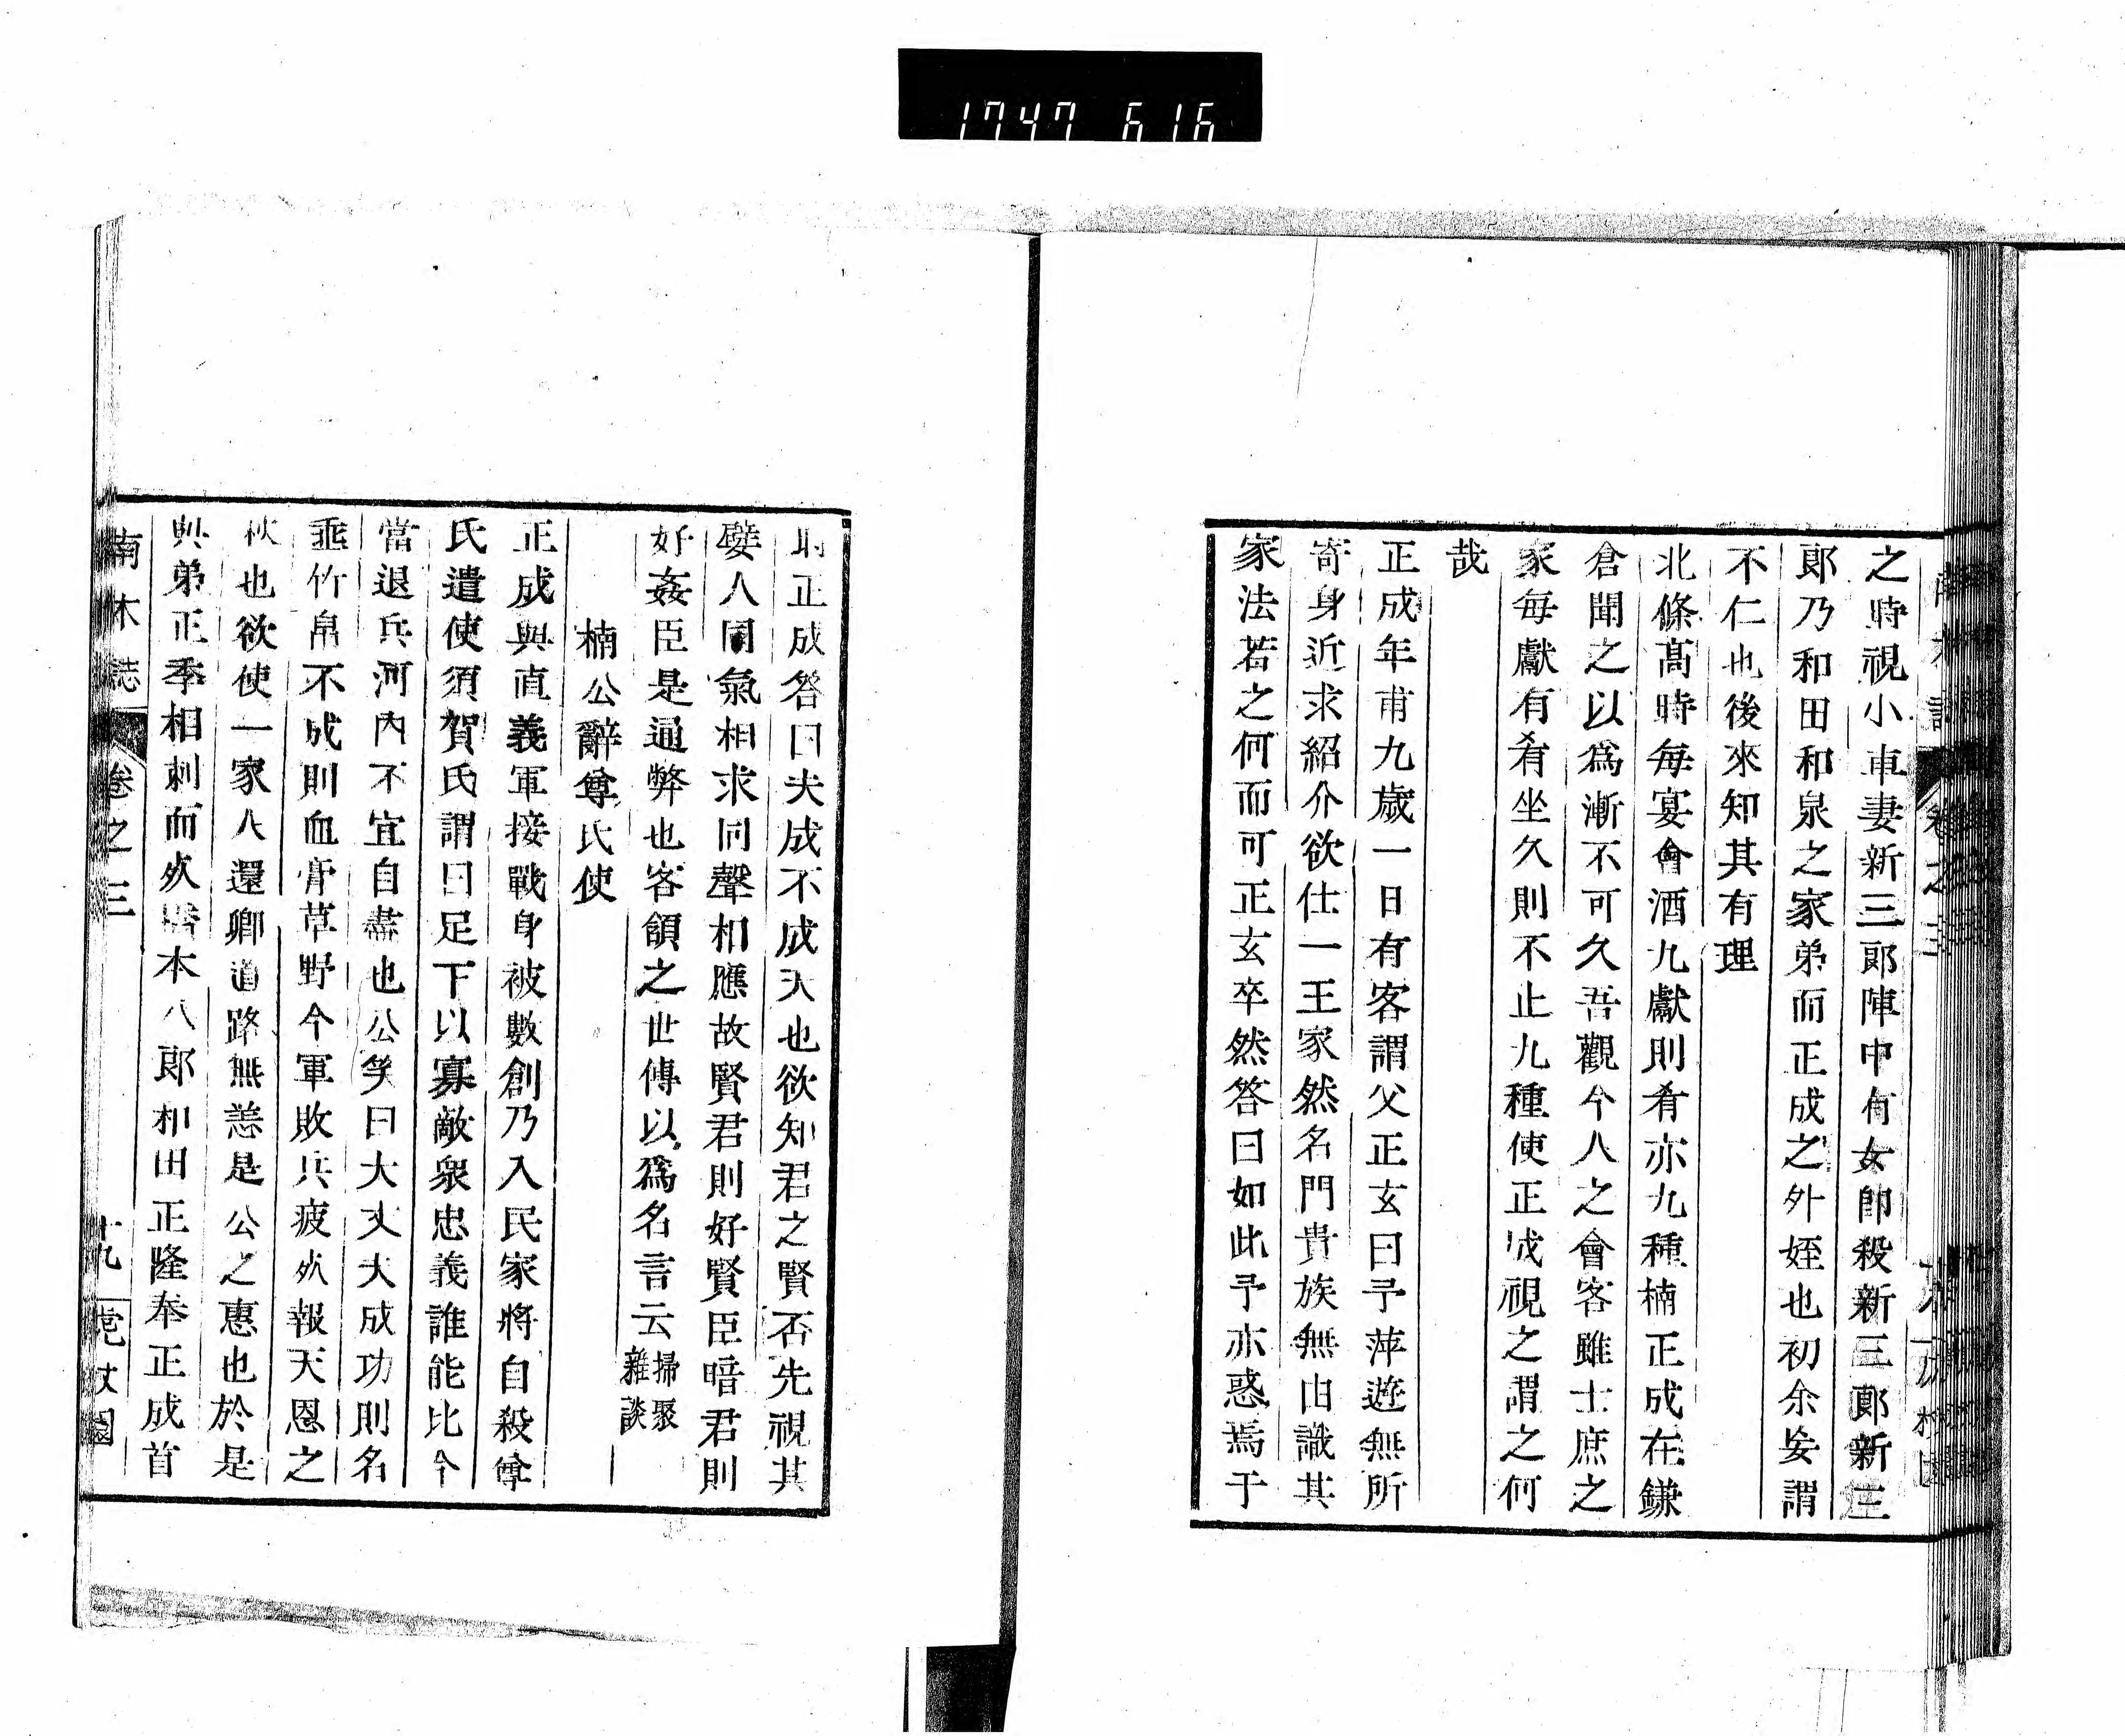 1747 616
之時視小車妻新三郞陣中有女卽殺新三郞新三
郞乃和田和泉之家弟而正成之外姪也初余妄謂
不仁也後來知其有理
北條髙時每宴會酒九獻則肴亦九種楠正成在鎌
倉聞之以爲漸不可久吾觀今人之會客雖士庶之
家每獻有肴坐久則不止九種使正成視之謂之何
哉
正成年甫九歲一日有客謂父正玄曰予萍遊無所
寄身近求紹介欲仕一王家然名門貴族無由識其
家法若之何而可正玄卒然答曰如此予亦惑焉于
時正成答曰夫成不成天也欲知君之賢否先視其
嬖人同氣相求同聲相應故賢君則好賢臣暗君則
好姦臣是通弊也客頷之世傳以爲名言云掃聚雜談
楠公辭尊氏使
正成與直義軍接戰身被數創乃入民家將自殺尊
氏遣使須賀氏謂曰足下以寡敵衆忠義誰能比今
當退兵河內不宜自盡也公笑曰大丈夫成功則名
垂竹帛不成則血膏草野今軍敗兵疲欢報天恩之
秋也欲使一家人還鄕道路無恙是公之惠也於是
與弟正季相刺而欢 木八郞和田正隆奉正成首
南木誌 卷之三 十九